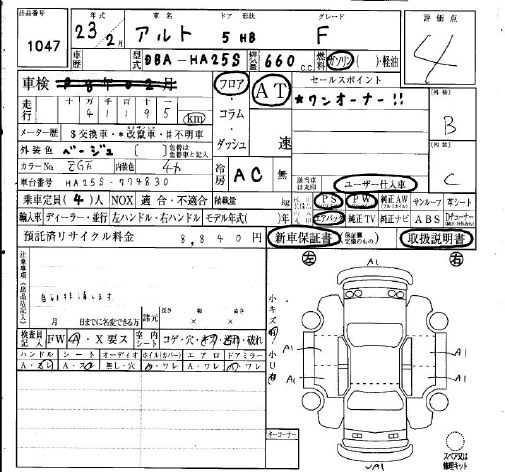 出品番号 1047
年式 23 2月
車名 アルト
ドア 形状 5 HB
グレード F
評価点 4
車歴
型式 DBA-HA25S
排気量 660 c.c.
燃料 ガソリン ( )・軽油
車検 月
走行 十 万 千 百 十
4 1 1 9 5 km
メーター歴 $交換車・*改竄車・#不明車
外装色 ベージュ ( ) 色替は色替車と記入
カラーNo. 内装色
車台番号 HA25S-774830
フロア・コラム・ダッシュ
AT 速
冷房 AC 無
セールスポイント
*ワンオーナー!!
B
C
ユーザー仕入車
乗車定員(4)人 NOX 適合・不適合 積載量 kg
PS PW 純正AW サンルーフ 本シート
輸入車 ディーラー・並行 左ハンドル・右ハンドル モデル年式( )年
エアバック 純正TV 純正ナビ ABS
預託済リサイクル料金 8,840円
新車保証書 取扱説明書
注意事項
月 日までに名変できる方
諸元 長さ 幅 高さ
× ×
検査員記入 FW A・X要ス 室内シート コゲ・穴・ 破れ
ハンドル シート オーディオ ホイル(カバー) エアロ ドアミラー
無し・穴 ワレ A・ワレ ワレ
左 右
小キズ 小U
A1
A1 A1
A1 A1
UA1
キーコーナー
スペア又は修理キット